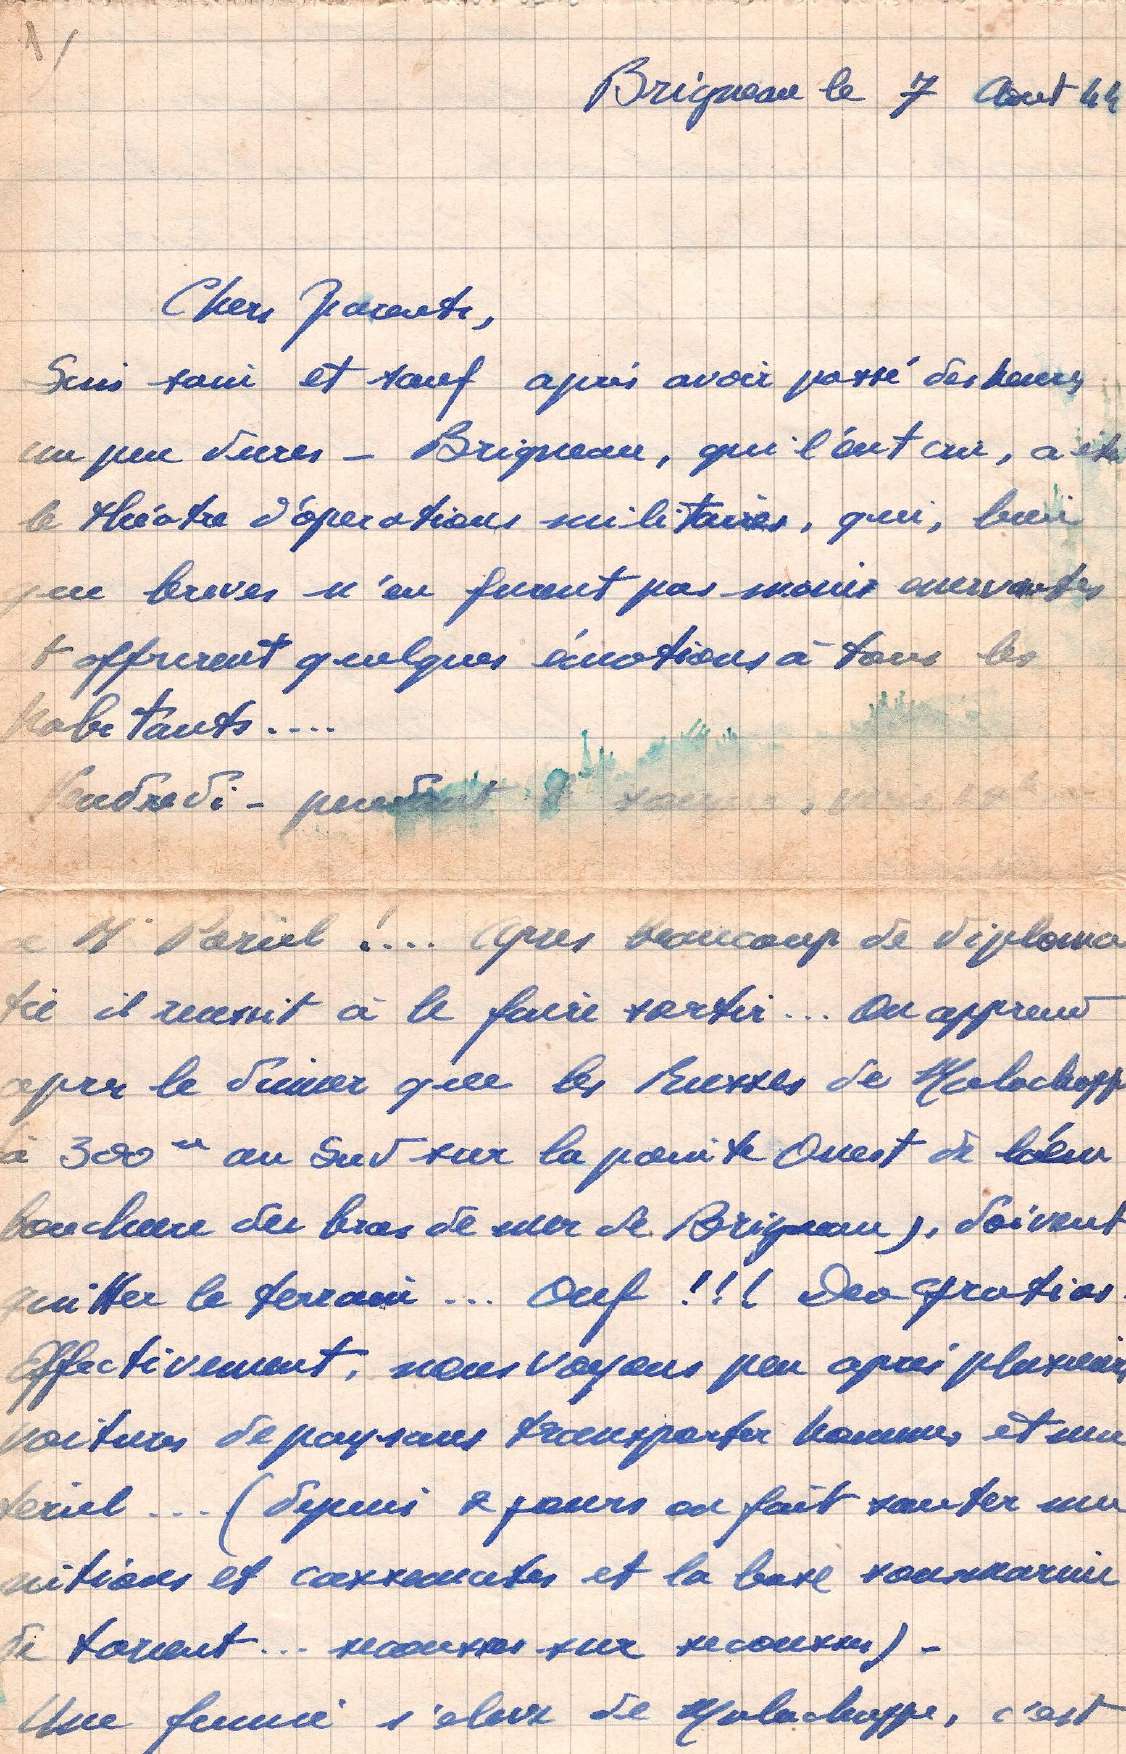 1/
Brigneau le 7 Aout 44
Chers parents,
Suis sain et sauf après avoir passé des heures
un peu dures – Brigneau, qui l'eut cru, a été
le théatre d'opérations militaires, qui, bien
que breves n'en furent pas moins enervantes
et offrirent quelques émotions à tous les
habitants....
Vendredi – pendant
a Mr Pariel !... Apres beaucoup de diploma
tie il reussit à le faire sortir... On apprend
apres le diner que les Russes de Malachappe
à 300m au Sud sur la pointe Ouest de l'em
bouchure du bras de mer de Brigneau), doivent
quitter le terrain ... Ouf !!! Deo Gratias.
Effectivement, nous voyons peu après plusieurs
voitures de paysans transporter hommes et ma
tériel ... (depuis 2 jours on fait sauter mu
nitions et casemates et la base sousmarine
de Lorient... secousses sur secousses) –
Une fumée s'eleve de Malachappe, c'est